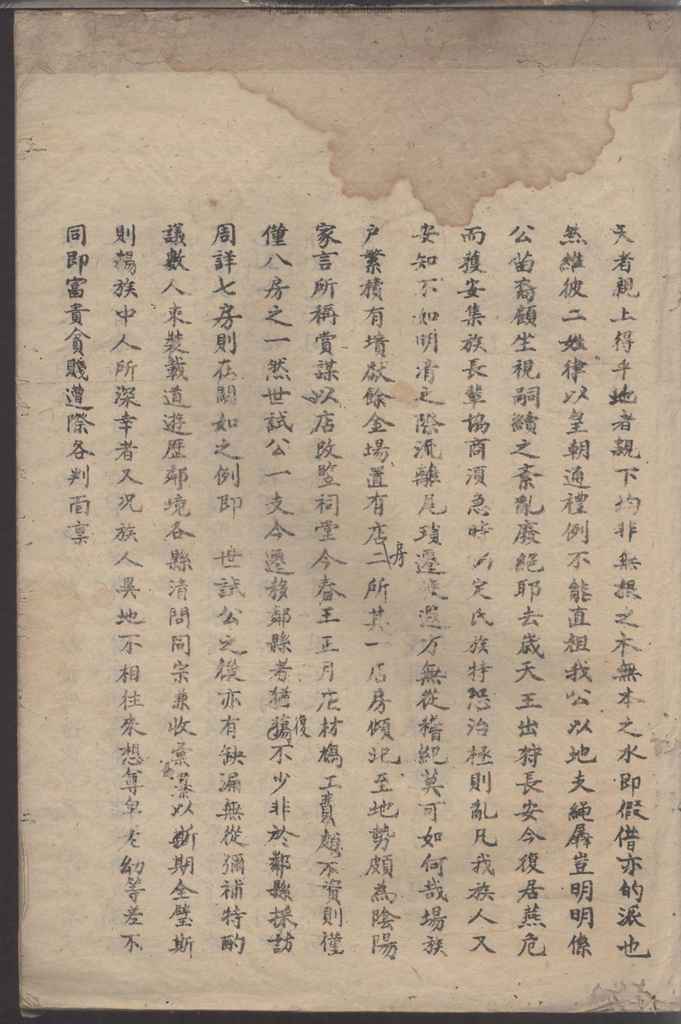 天者親上得乎地者親下均非無根之木無本之水即假借亦的派也
然維彼二姓律以皇朝通禮例不能直祖我公以地夫繩孱豈明明係
公苗裔顧坐視嗣續之紊亂廢絕耶去歲天王出狩長安今復居燕危
而獲安集族長輩協商須急時而定氏族特恐治極則亂凡我族人又
安知不如明清之際流離尾瑣遷遐方無從稽紀莫可如何哉場族
户繁積有墳獻餘金場置有店房二所其一店房傾圮至地勢頗為陰陽
家言所稱賞謀以店改監祠堂今春王正月庀材鳩工費頗不資則僅
僅八房之一然世試公一支今遷移鄰縣者猶復不少非於鄰縣採訪
周詳七房則在闕如之例即 世試公之後亦有缺漏無從彌補特酌
議數人束裝載道遊歷鄰境各縣清問同宗兼收彙纂以斯期全璧斯
則楊族中人所深幸者又況族人異地不相往來想尊卑老幼等差不
同即富貴貧賤遭際各判面稟